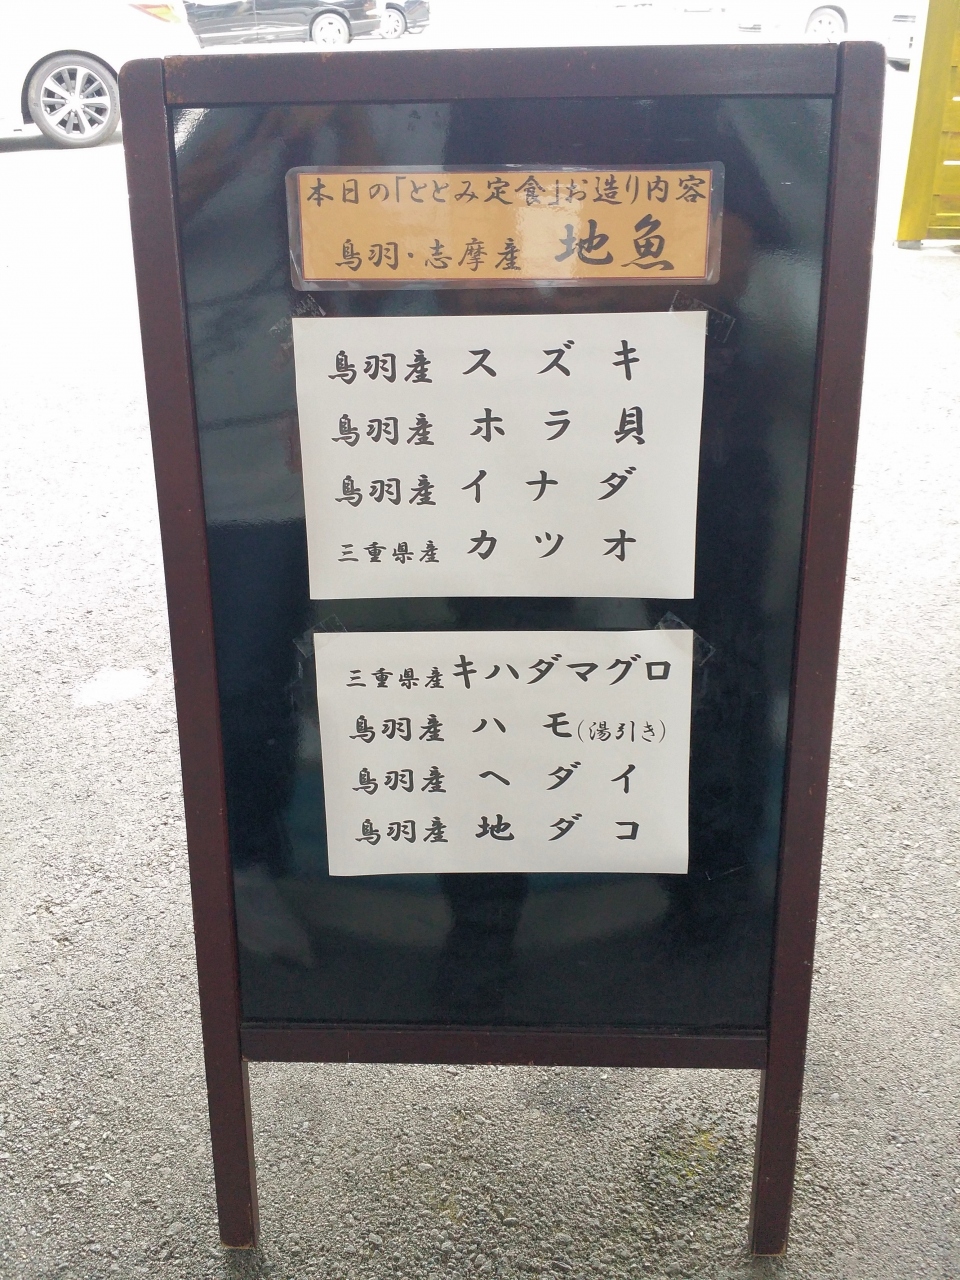 本日の「ととみ定食」お造り内容
鳥羽・志摩産 地魚
鳥羽産 スズキ
鳥羽産 ホラ貝
鳥羽産 イナダ
三重県産 カツオ
三重県産 キハダマグロ
鳥羽産 ハモ(湯引き)
鳥羽産 ヘダイ
鳥羽産 地ダコ